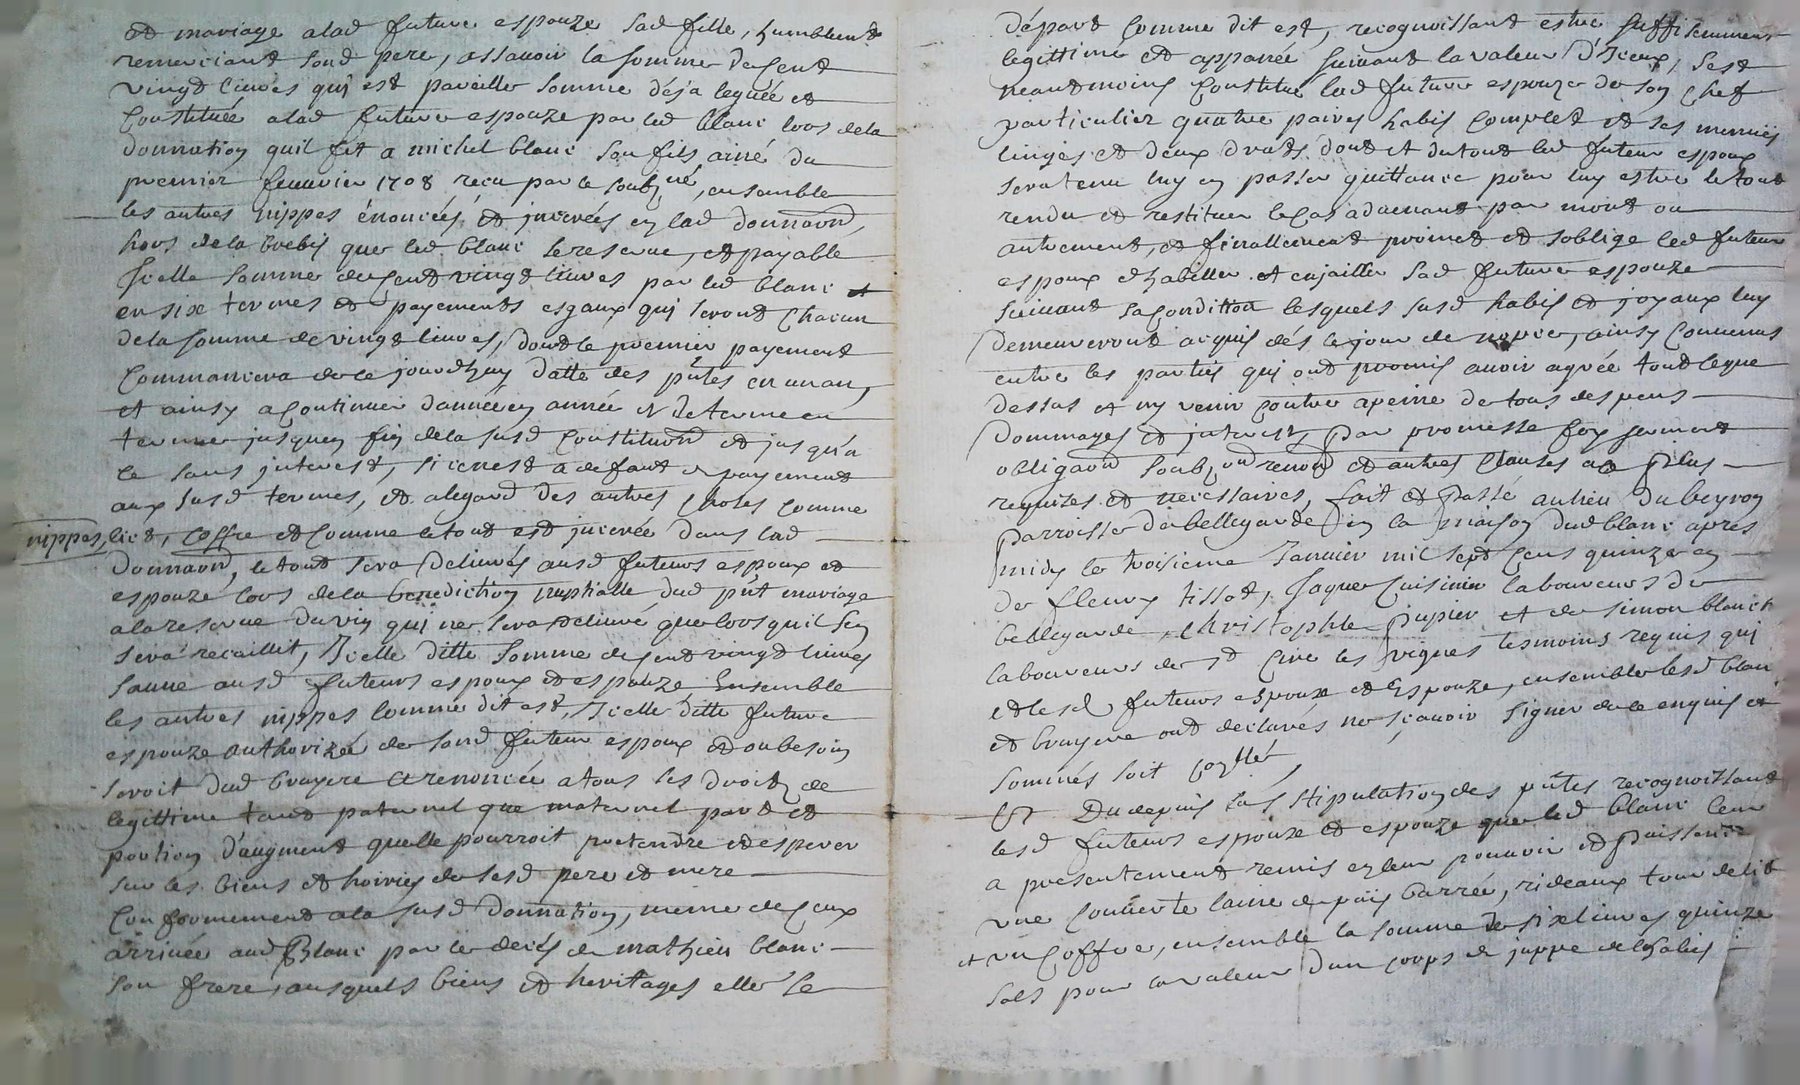 et mariage a lad future espouze sad fille, humblemt
remerciant sond pere, assavoir la somme de cent
vingt livres qui est pareille somme déja leguée et
constituée a lad future espouze par led blanc lors de la
donnation quil fit a michel blanc son fils ainé du
premier feuvrier 1708 receu par le soubzné, ensemble
les autres nippes énoncées et incerées en lad donnaon,
hors de la brebis que led blanc se reserve, et payable
Icelle somme de cent vingt livres par led blanc
en six termes et payements esgaux qui seront chacun
de la somme de vingt livres, dont le premier payement
commancera de ce jourdhuy datte des pntes en un an,
et ainsy a continuer dannée en année et de terme en
terme jusquen fin de la susd constituon et jusqua
ce sans interest, si cenest a defaut de payement
aux susd termes, et alegard des autres choses comme
nippes, lict, coffre et comme le tout est inceré dans lad
donnaon, le tout sera delivré ausd futurs espoux et
espouze lors de la benediction nuptialle dud pnt mariage
ala reserve du vin qui ne sera delivré que lors quil sen
sera recuillit, Icelle ditte somme de cent vingt livres
sauve ausd futurs espoux et espouze Ensemble
les autres nippes comme dit est, Icelle ditte future
espouze authorizée de sond futur espoux et au besoin
seroit dud bruyere a renoncée a tous ses droits de
legittime tant paternel que maternel part et
portion d'augment quelle pourroit pretendre et esperer
sur les biens et hoiries de sesd pere et mere
conformement ala susd donnation, meme de ceux
arrivée aud Blanc par le decés de mathieu blanc
son frere, ausquels biens et heritages elle se
départ comme dit est, recognoissant estre suffisemment
legittime et appanée suivant la valeur d'Iceux, sest
neantmoins constitué lad future espouze de son chef
particulier quatre paires habis complet et ses menües
linges et deux draps dont et du tout led futur espoux
sera tenu luy en passer quittance pour luy estre le tout
rendu et restituer le cas advenant par mort ou
autrement, et finallement promet et soblige led futur
espoux dhabiller et enjailler sad future espouze
suivant sa condition lesquels susd habis et joyaux luy
demeureront acquis dés le jour de nopce, ainsy convenus
entre les parties qui ont promis avoir agrée tout ce que
dessus et ny venir contre apeine de tous despens
dommages et interest, Par promesse foy serment
obligaon soubzon renon et autres clauses a ce Plus
requises et necessaires, fait et Passé au lieu du beyron
Parroisse de bellegarde en la maison dud blanc apres
midy le troisieme Janvier mil sept cens quinze en
de fleury tissot, Jaque Cuisinier laboureurs de
bellegarde, christophle Pupier et de simon blanch
laboureurs de st Cire les vignes tesmoins requis qui
et lesd futurs espoux et Espouze, ensemble lesd blanc
et bruyere ont declarés ne sçavoir signer de ce enquis et
sommés soit conllé
Et Du depuis las stipulation des pntes recognoissant
lesd futurs espoux et espouze que led blanc leur
a presentement remis en leur pouvoir et Puissence
une couverte laine de païs barrée, rideaux tour de lit
et un coffre, ensemble la somme de six livres quinze
sols pour la valeur dun corps de juppe de